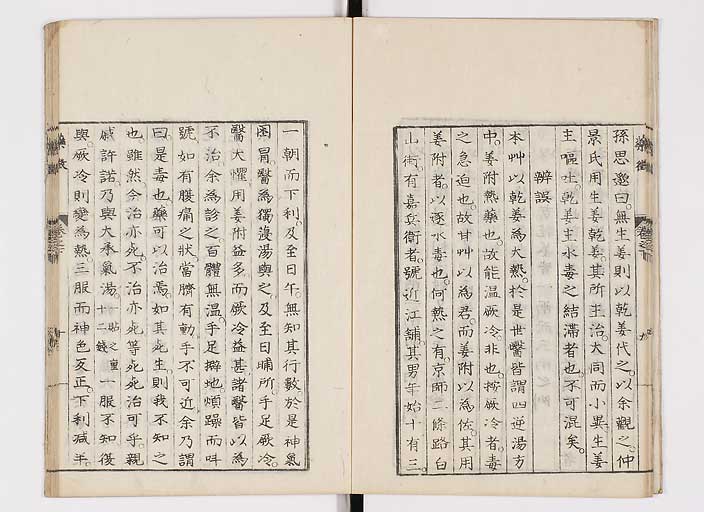 孫思邈曰。無生姜則以乾姜代之。以余觀之。仲
景氏用生姜乾姜。其所主治。大同而小異。生姜
主嘔吐。乾姜主水毒之結滯者也。不可混矣。
辨誤
本艸以乾姜為大熱。於是世醫皆謂四逆湯方
中。姜附熱藥也。故能温厥冷。非也。按厥冷者。毒
之急迫也。故甘艸以為君。而姜附以為佐。其用
姜附者。以逐水毒也。何熱之有。京師二條路白
山街。有嘉兵衛者。號近江鋪。其男年始十有三。
一朝而下利。及至日午。無知其行數。於是神氣
困冒。醫為獨湯與之。及至日晡所。手足厥冷。
醫大懼。用姜附益多。而厥冷益甚。諸醫皆以為
不治。余為診之。百體無温。手足擗地。煩躁而叫
號。如有腹痛之狀。當臍有動。手不可近。余乃謂
曰。是毒也。藥可以治焉。如其死生則我不知之
也。雖然今治亦死。不治亦死。等死。死治可乎。親
戚許諾。乃與大承氣湯。一貼之重十二錢 一服不知。復
與。厥冷則變為熱。三服而神色反正。下利減半。
藥徵
藥徵